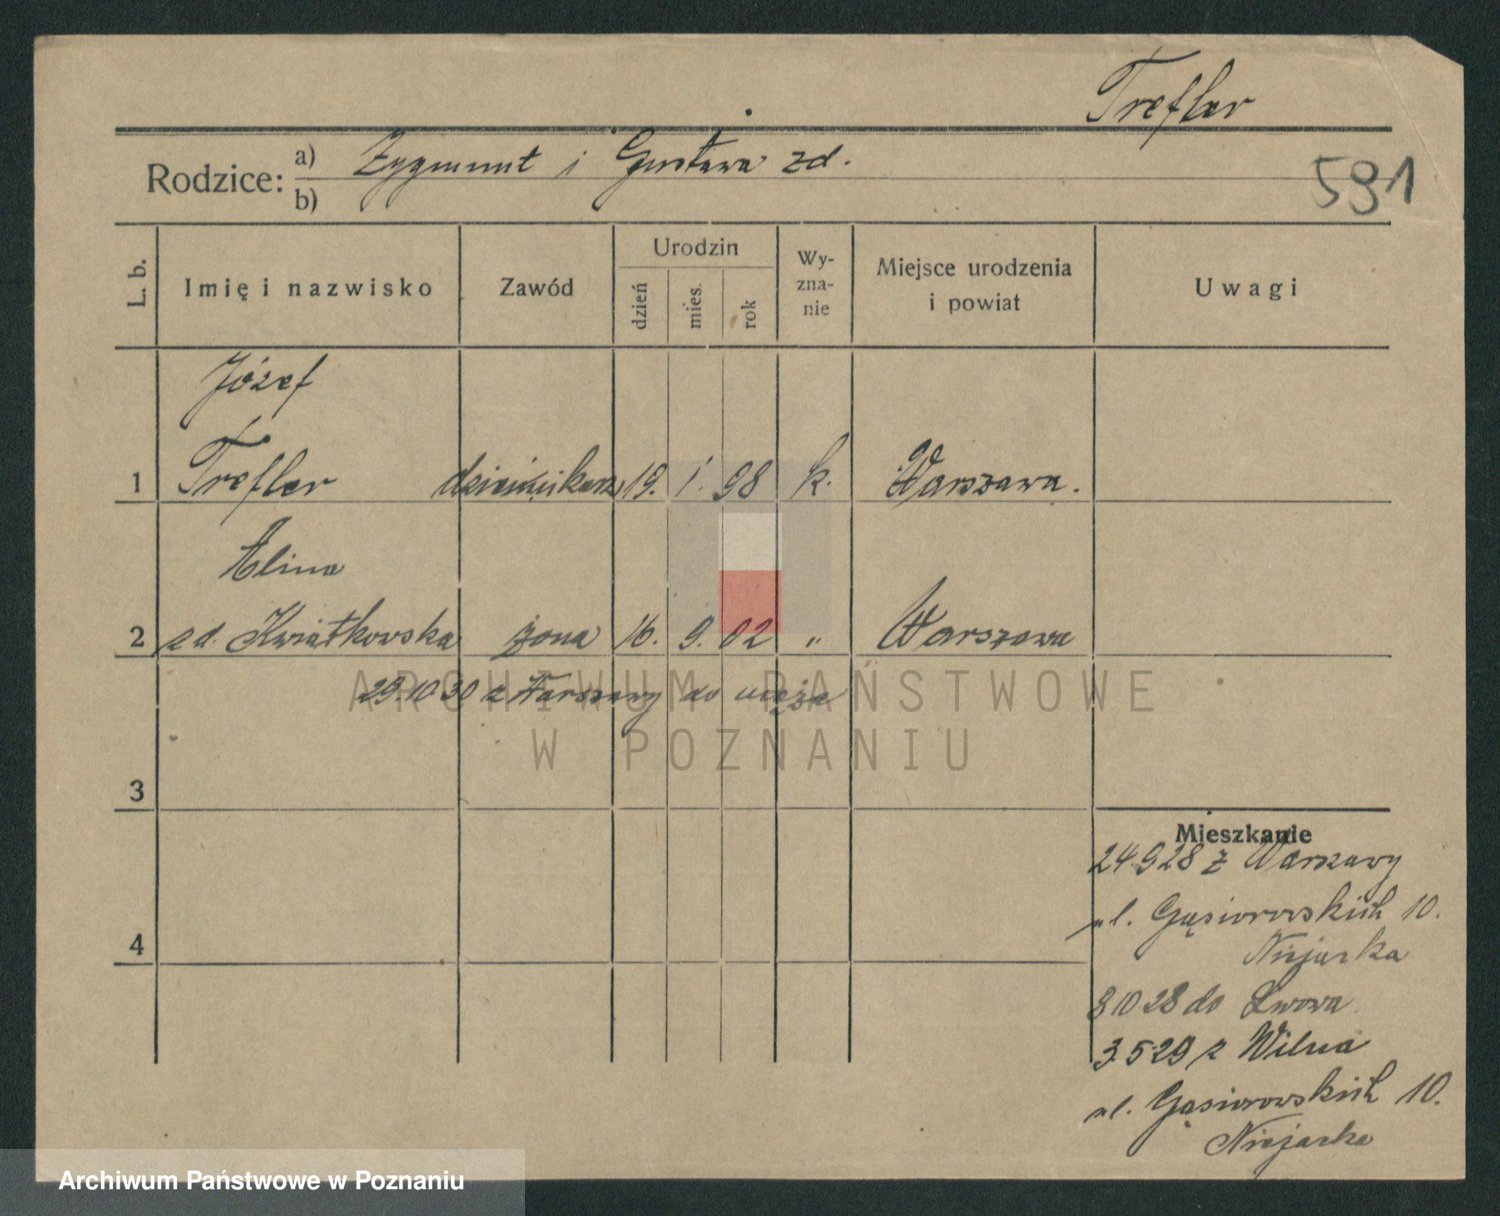 Trefler
Rodzice: a) Zygmunt i Gustawa zd.
b)
591
L. b. Imię i nazwisko Zawód Urodzin dzień mies. rok Wy-zna-nie Miejsce urodzenia i powiat Uwagi
Józef
1 Trefler dziennikarz 19. 1. 98 k. Warszawa.
Alina
2 zd. Kwiatkowska żona 16. 9. 02 " Warszawa
29.10 30 z Warszawy do męża
ARCHIWUM PAŃSTWOWE
W POZNANIU
3
4
Mieszkanie
24.9.28 z Warszawy
ul. Gąsiorowskich 10.
8 10 28 do Lwowa
3.5.29 z Wilna
ul. Gąsiorowskich 10.
Archiwum Państwowe w Poznaniu